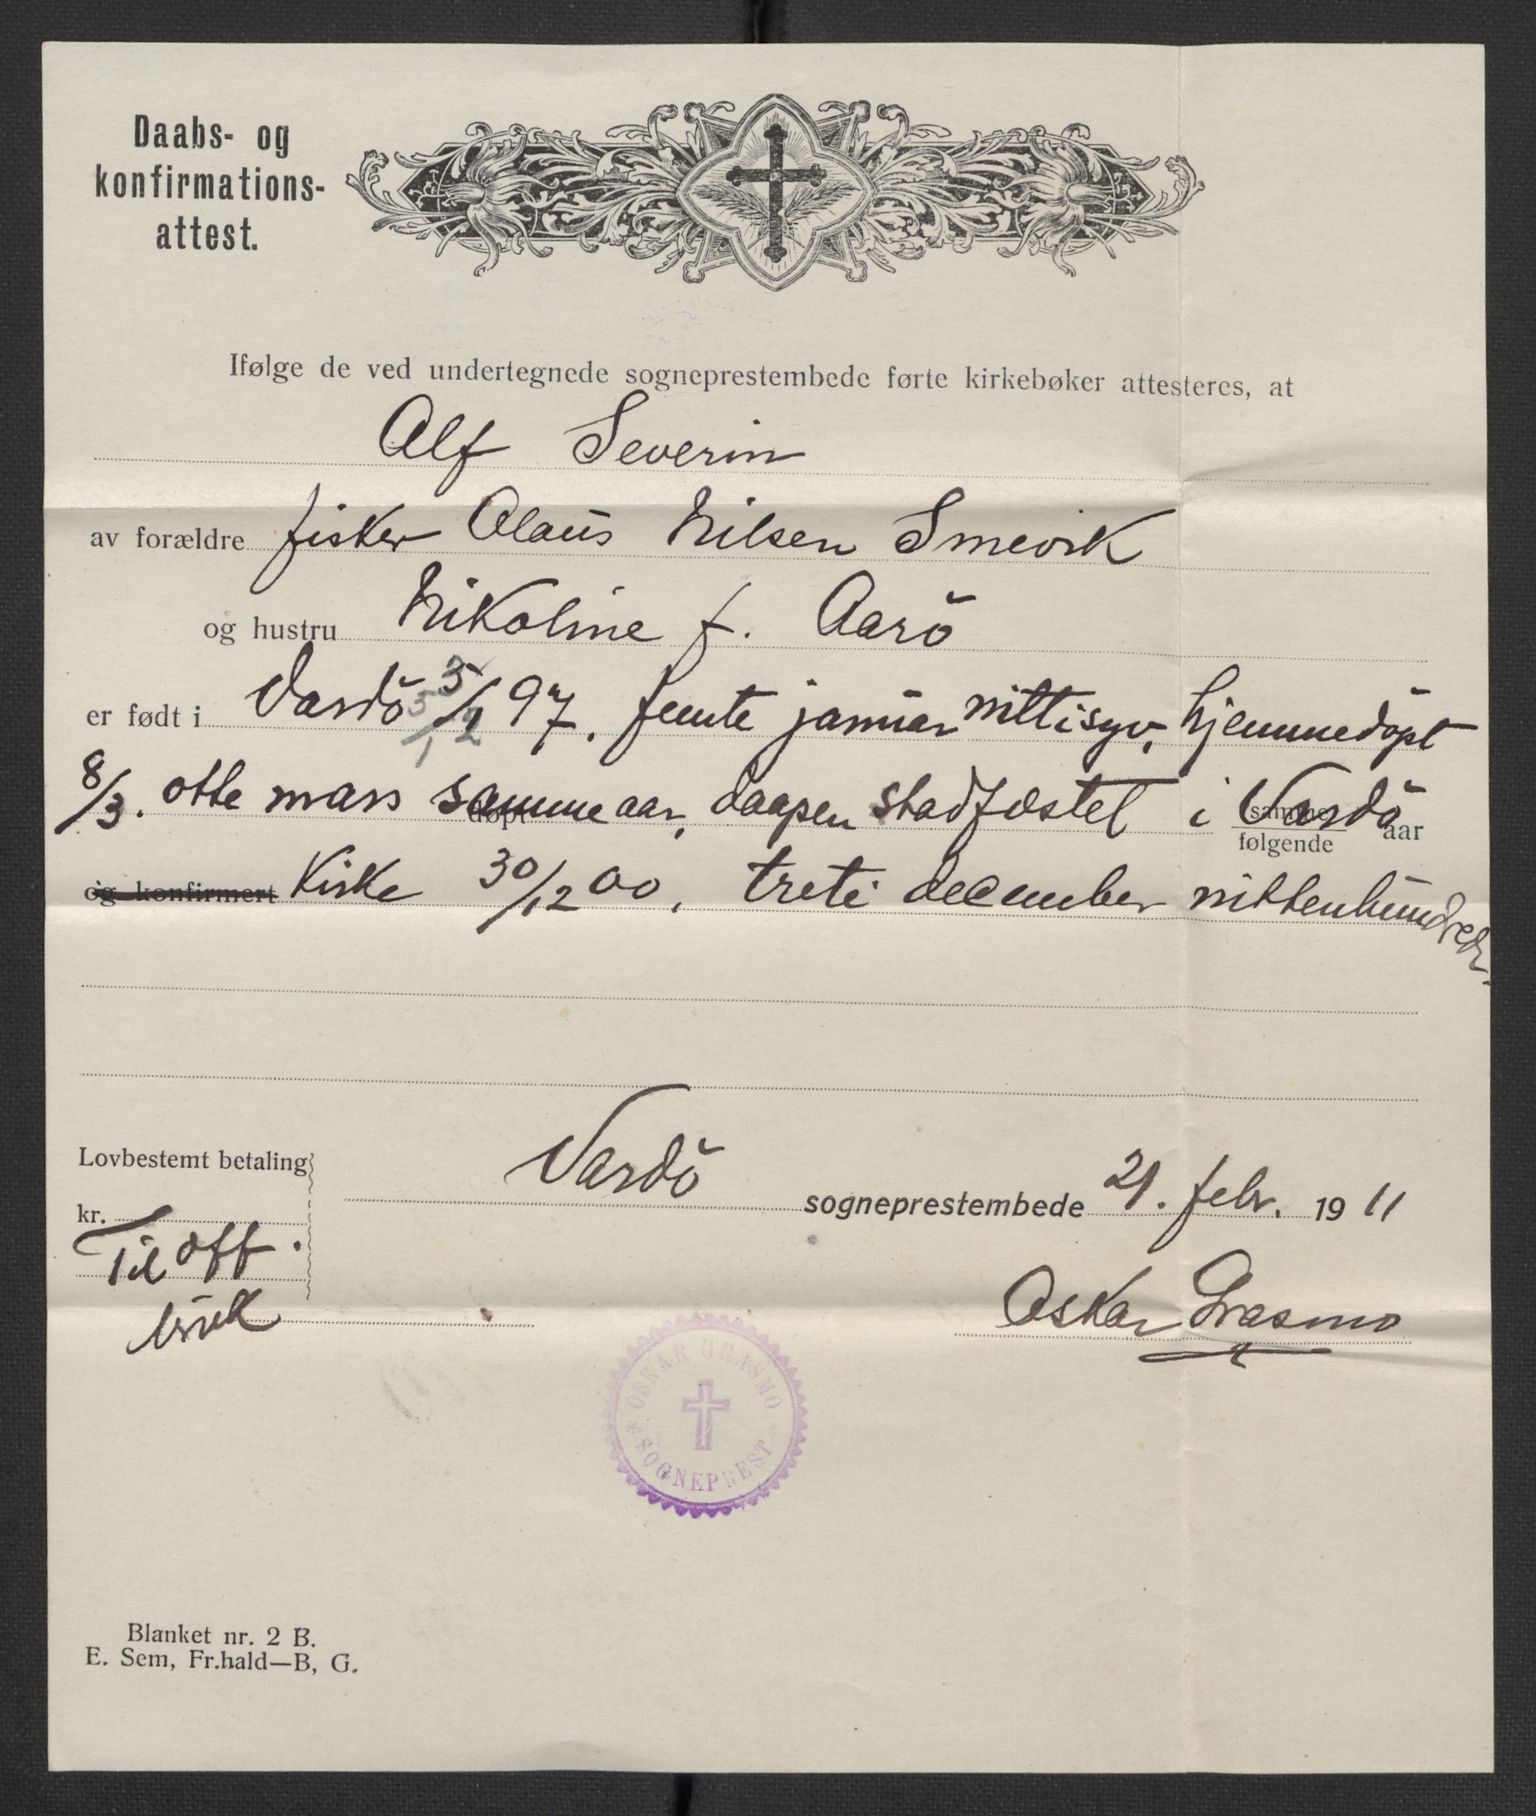 Daabs- og
konfirmations-
attest.
Ifølge de ved undertegnede sogneprestembede førte kirkebøker attesteres, at
Alf Severin
av forældre fisker Olaus Nilsen Smevik
og hustru Nikoline f. Aarö
er født i Vardö 5/1 97. femte januar nittisyv, hjemmedöpt
8/3. otte mars samme aar, daapen stadfæstet i Vardö aar
døpt samme følgende
og konfirmert Kirke 30/12 00. treti december nittenhundrede.
Lovbestemt betaling
kr.
Til off.
bruk
Vardö sogneprestembede 21. febr. 1911
Oskar Grasmo
OSKAR GRASMO
* SOGNEPREST
Blanket nr. 2 B.
E. Sem, Fr.hald—B, G.